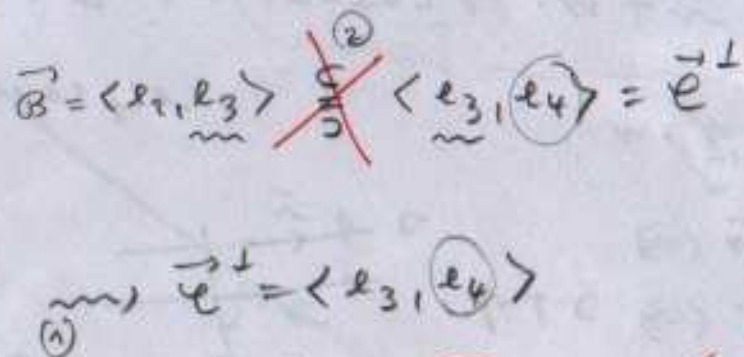 ②
B⃗ = <e₂, e₃> ⊆ ⊇ <e₃, e₄> = C⃗^⊥
① ⇝ C⃗^⊥ = <e₃, e₄>